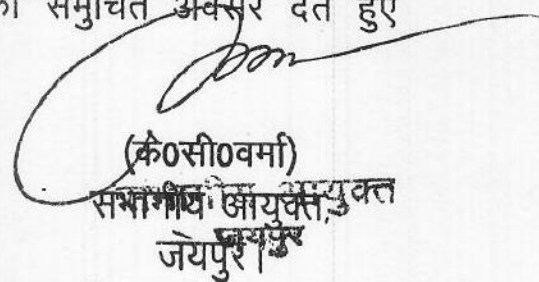 का समुचित अवसर देते हुए
(के0सी0वर्मा)
संभागीय आयुक्त,
जयपुर।
आयुक्त
जयपुर